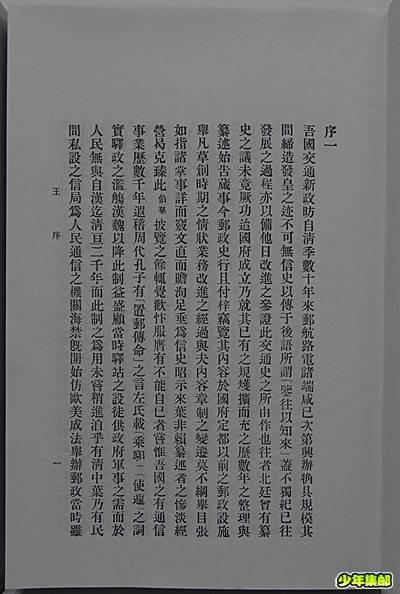 序一
吾國交通新政昉自清季數十年來郵航路電諸端咸已次第興辦犕具規模其
間締造發皇之迹不可無信史以傳于後語所謂「鑒往以知來」蓋不獨紀已往
發展之過程亦以備他日改進之參證此交通史之所由作也往者北廷曾有纂
史之議未竟厥功迨國府成立乃就其已有之規模擴而充之歷數年之整理與
纂述始告蕆事今郵政史行且付梓竊覽其內容於國府定都以前之郵政設施
舉凡草創時期之情狀業務改進之經過與夫內容章制之變遷莫不綱舉目張
如指諸掌事詳而竅文直而贍洵足垂為信史昭示來葉非賴纂述者之慘淡經
營曷克臻此伯羣披覽之餘輒覺歡忭服膺有不能自已者嘗惟吾國之有通信
事業歷數千年遐稽周代孔子有「置郵傳命」之言左氏載「乘馹」「使遽」之詞
實驛政之濫觴漢魏以降此制益盛顧當時驛站之設徒供政府軍事之需而於
人民無與自漢迄清亘二千年而此制之為用未嘗稍進洎乎有清中葉乃有民
間私設之信局為人民通信之機關海禁既開始仿歐美成法舉辦郵政當時雖
王序
一
少年集邮